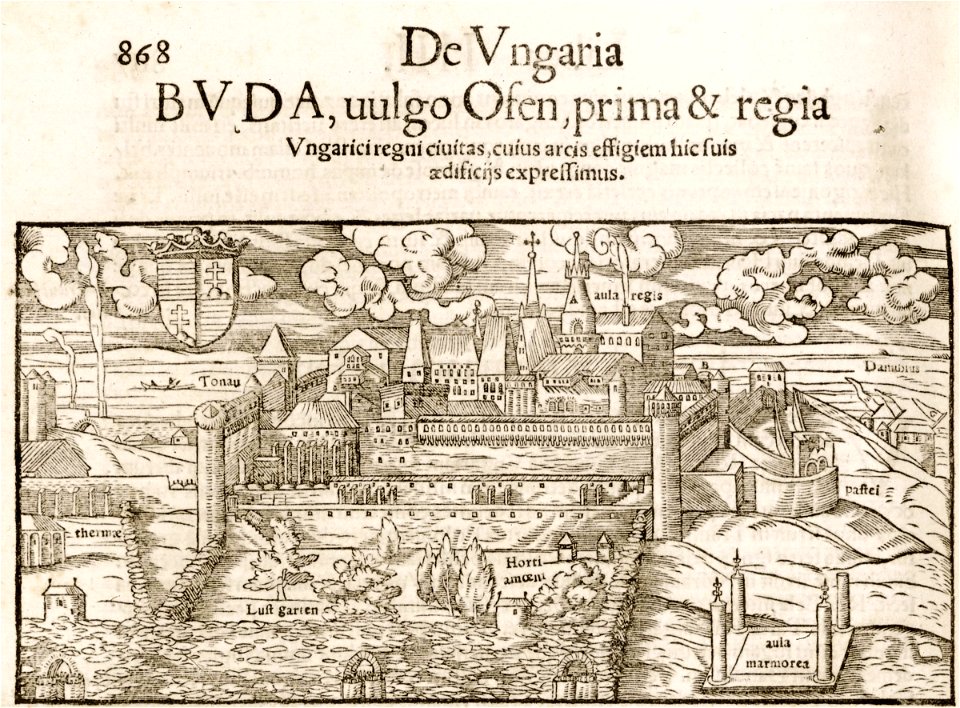 868
De Vngaria
BVDA, uulgo Ofen, prima & regia
Vngarici regni ciuitas, cuius arcis effigiem hic suis
ædificijs expressimus.
aula regis
Tonau
B
Danubius
pastei
thermæ
Horti
amœni
Lust garten
aula
marmorea